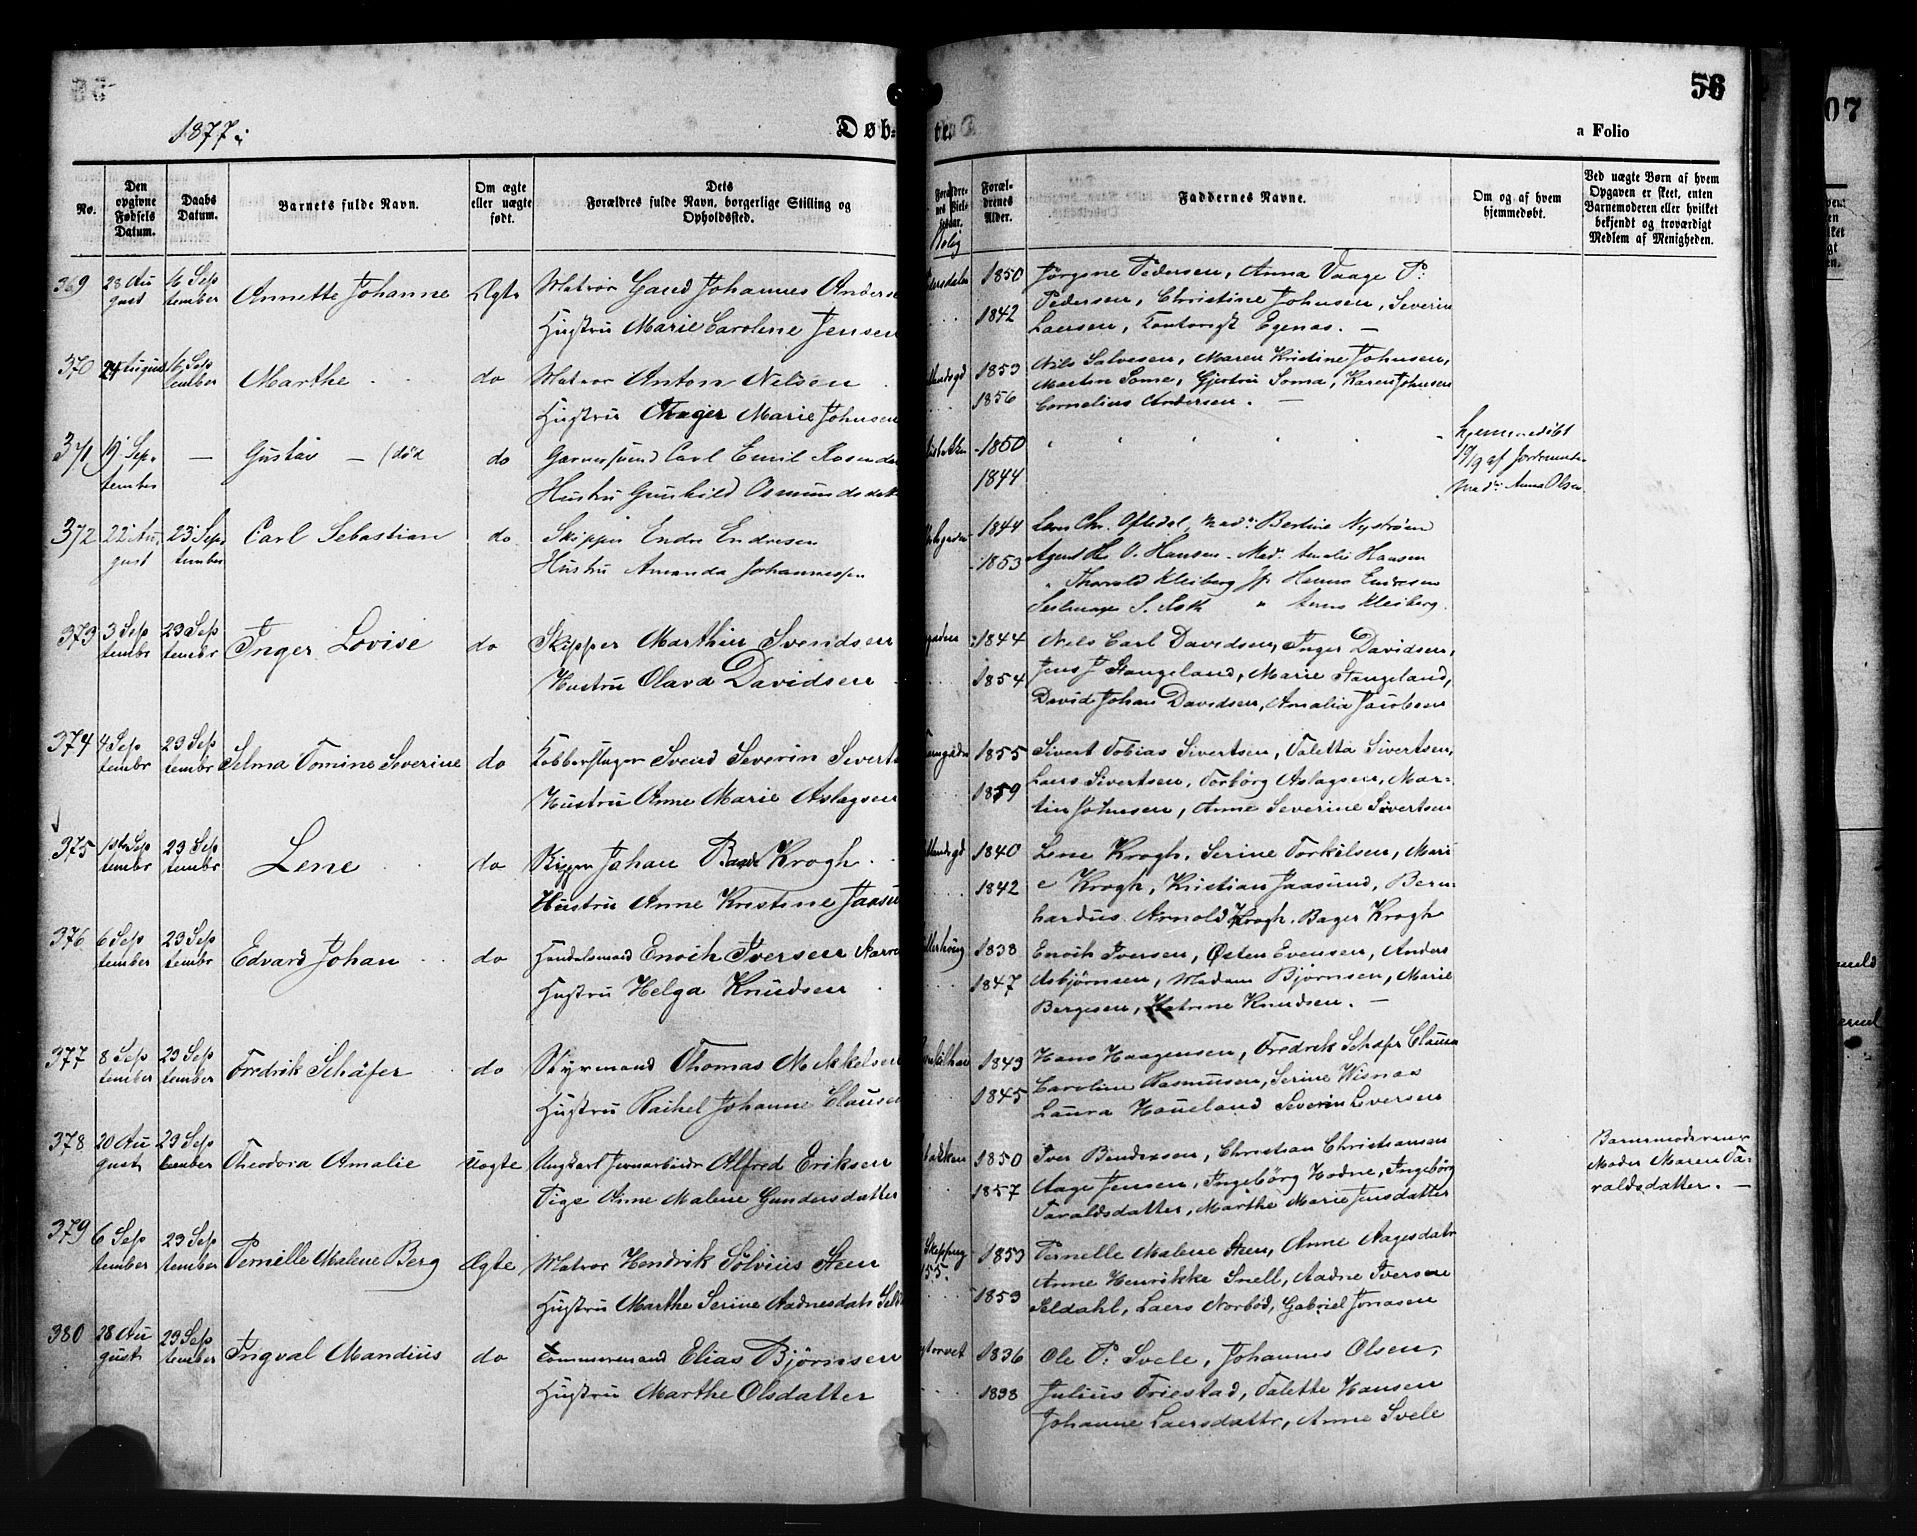 56
1877
Døb-
te.
a Folio
No.
Den opgivne Fødsels Datum.
Daabs Datum.
Barnets fulde Navn.
Om ægte eller uægte født.
Dets
Forældres fulde Navn, borgerlige Stilling og
Opholdssted.
Forældrenes
Bolig
Forældrenes Alder.
Faddernes Navne.
Om og af hvem hjemmedøbt.
Ved uægte Børn af hvem Opgaven er skeet, enten Barnemoderen eller hvilket bekjendt og troværdigt Medlem af Menigheden.
369 28 August 16 September Annette Johanne Ægte Matros Gaud Johannes Anders
Hustru Marie Caroline Jensen
1850 Jörgine Pedersen, Anna Vaage P:
1842 Pedersen, Christine Johnsen, Severin
Laursen, Egenæs. —
370 24 August 16 September Marthe do Matros Anton Nelsen
Hustru Marie Johnsen
1853 Nils Salvesen, Maren Kristine Johnsen,
1856 Marten Some, Gjertru Soma, Karen Johnsen
Cornelius Andersen. —
371 19 September — Gustav — (død do Garversvend Carl Emil Rosen
Hustru Gunhild Osmundsdatt
1850
1844
hjemmedöbt
19/9 af Jordemoder
Mad: Anna Olsen
372 22 August 23 September Carl Sebastian do Skipper Endre Endresen
Hustru Amanda Johannessen
1844 Lars Chr. Oftedal, Mad: Bertine Nyström
1853 Agent H. O. Hansen. Mad. Amalie Hansen
" Thorvald Kleiberg Jf. Hanna Endresen
S. " Anna Kleiberg.
373 3 Septembr 23 Septembr Inger Lovise do Skipper Marthin Svendsen
Hustru Olava Davidsen
1844 Nils Carl Davidsen, Inger Davidsen,
1854 Jens J Stangeland, Marie Stangeland,
David Johan Davidsen, Amalia Jacobsen
374 4 Septembr 23 Septembr Selma Tomine Severine do Kobberslager Svend Severin Sivert
Hustru Anne Marie Aslagsen
1855 Sivert Tobias Sivertsen, Taletta Sivertsen,
1859 Laers Sivertsen, Torbörg Aslagsen, Mar-
tin Johnsen, Anne Severine Sivertsen
375 Septembr 23 Septembr Lene do Skipper Johan Krogh
Hustru Anne Kristine Jaasu
1840 Lene Krogh, Serine Torkelsen, Mari
1842 e Krogh, Kristian Jaasund, Bern-
hardus Arnold Krogh, Bager Krogh
376 6 September 23 Septembr Edvard Johan do Handelsmand Enoch Iversen
Hustru Helga Knudsen
1838 Enoch Iversen, Østen Evensen, Anders
1847 Asbjørnsen, Madam Bjørnsen, Marie
Bergesen, Katrine Knudsen. —
377 8 September 23 September Fredrik Schäfer do Styrmand Thomas Mikkelsen
Hustru Rachel Johanne Clausen
1849 Hans Haagensen, Fredrik Schäfer Clausen
1845 Caroline Rasmusen, Serine Wisnæs
Laura Haueland Severin Iversen
378 20 August 23 September Theodora Amalie Uægte Ungkarl Jernarbeider Alfred Eriksen
Pige Anne Malene Gundersdatter
1850 Iver Christian Christiansen
1857 Aage Jensen, Ingebörg Hodne, Ingebörg
Taraldsdatter, Marthe Marie Jensdatter
Barnemoderens
Moder Maren Ta-
raldsdatter. —
379 6 September 23 September Pernille Malene Berg Ægte Matros Hendrik Sölvius Steen
Hustru Marthe Serine Aadnesdatr
1853 Pernelle Malene Steen, Anne Aagesdatr
1853 Anne Henrikke Snell, Aadne Iversen
Seldahl, Laers Norbø, Gabriel Jonasen
380 28 August 23 September Ingval Mandius do Tømmermand Elias Björnsen
Hustru Marthe Olsdatter
1836 Ole P. Svele, Johannes Olsen,
1838 Julius Friestad, Talette Hansen
Johanne Laersdattr, Anne Svele
07